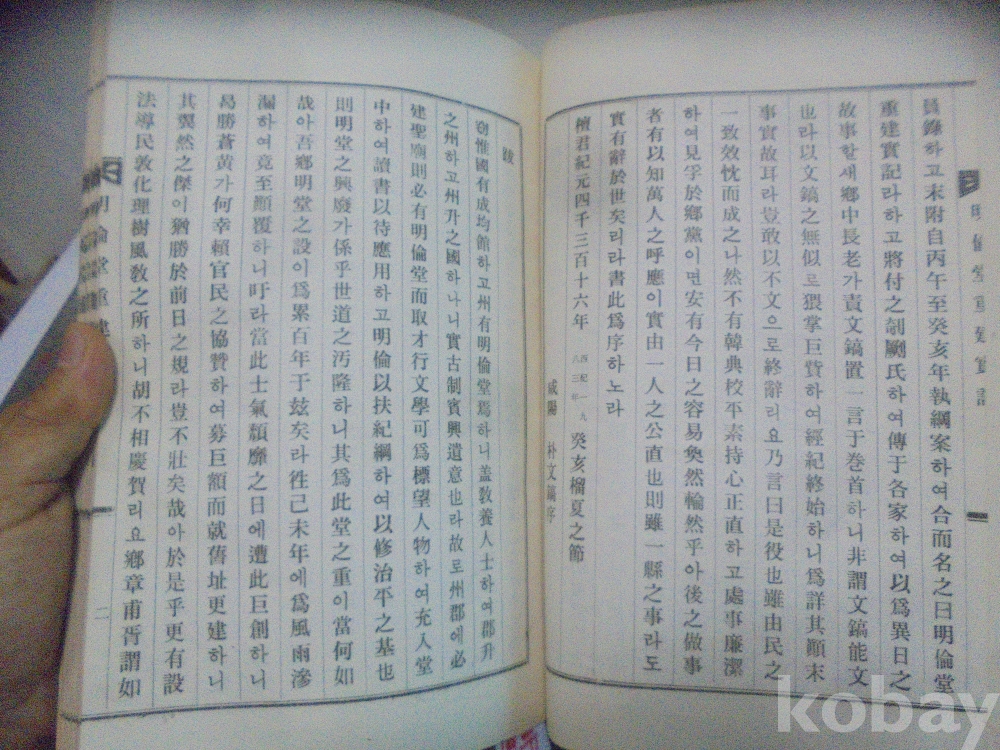 員錄하고末附自丙午至癸亥年執綱案하여合而名之曰明倫堂
重建實記라하고將付之剞劂氏하여傳于各家하여以爲異日之
故事할새鄕中長老가責文鎬置一言于卷首하니非謂文鎬能文
也라以文鎬之無似로猥掌巨贊하여經紀終始하니爲詳其顚末
事實故耳라豈敢以不文으로終辭리요乃言曰是役也雖由民之
一致效忱而成之나然不有韓典校平素持心正直하고處事廉潔
하여見孚於鄕黨이면安有今日之容易奐然輪然乎아後之做事
者有以知萬人之呼應이實由一人之公直也則雖一縣之事라도
實有辭於世矣리라書此爲序하노라
檀君紀元四千三百十六年 癸亥榴夏之節
咸陽 朴文鎬序
跋
窃惟國有成均館하고州有明倫堂焉하니盖敎養人士하여郡升
之州하고州升之國하나니實古制賓興遺意也라故로州郡에必
建聖廟則必有明倫堂而取才行文學可爲標望人物하여充入堂
中하여讀書以待應用하고明倫以扶紀綱하여以修治平之基也
則明堂之興廢가係乎世道之汚隆하니其爲此堂之重이當何如
哉아吾鄕明堂之設이爲累百年于玆矣라徃己未年에爲風雨滲
漏하여竟至顚覆하니吁라當此士氣頹靡之日에遭此巨創하니
曷勝蒼黃가何幸賴官民之協贊하여募巨額而就舊址更建하니
其翼然之傑이猶勝於前日之規라豈不壯矣哉아於是乎更有設
法導民敦化理樹風敎之所하니胡不相慶賀리요鄕章甫胥謂如
明倫堂重建
二
kobay